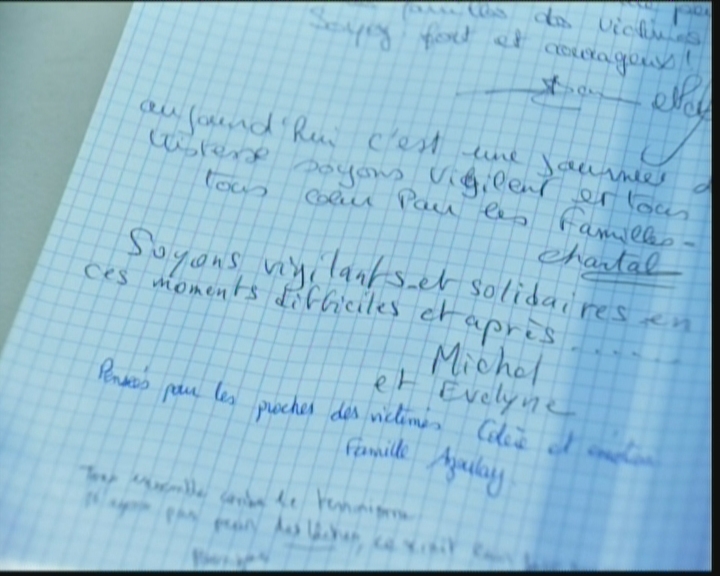 familles des victimes
Soyez fort et courageux!
aujourd'hui c'est une journée d
tristesse soyons vigilent et tous
tous cœur Pour les familles-
chantal
Soyons vigilants et solidaires en
ces moments difficiles et après ......
Michel
et Evelyne
Pensées pour les proches des victimes Colère et émotion
Famille Azoulay
Tous ensemble contre le terrorisme
N'ayons pas peur des lâches, ce